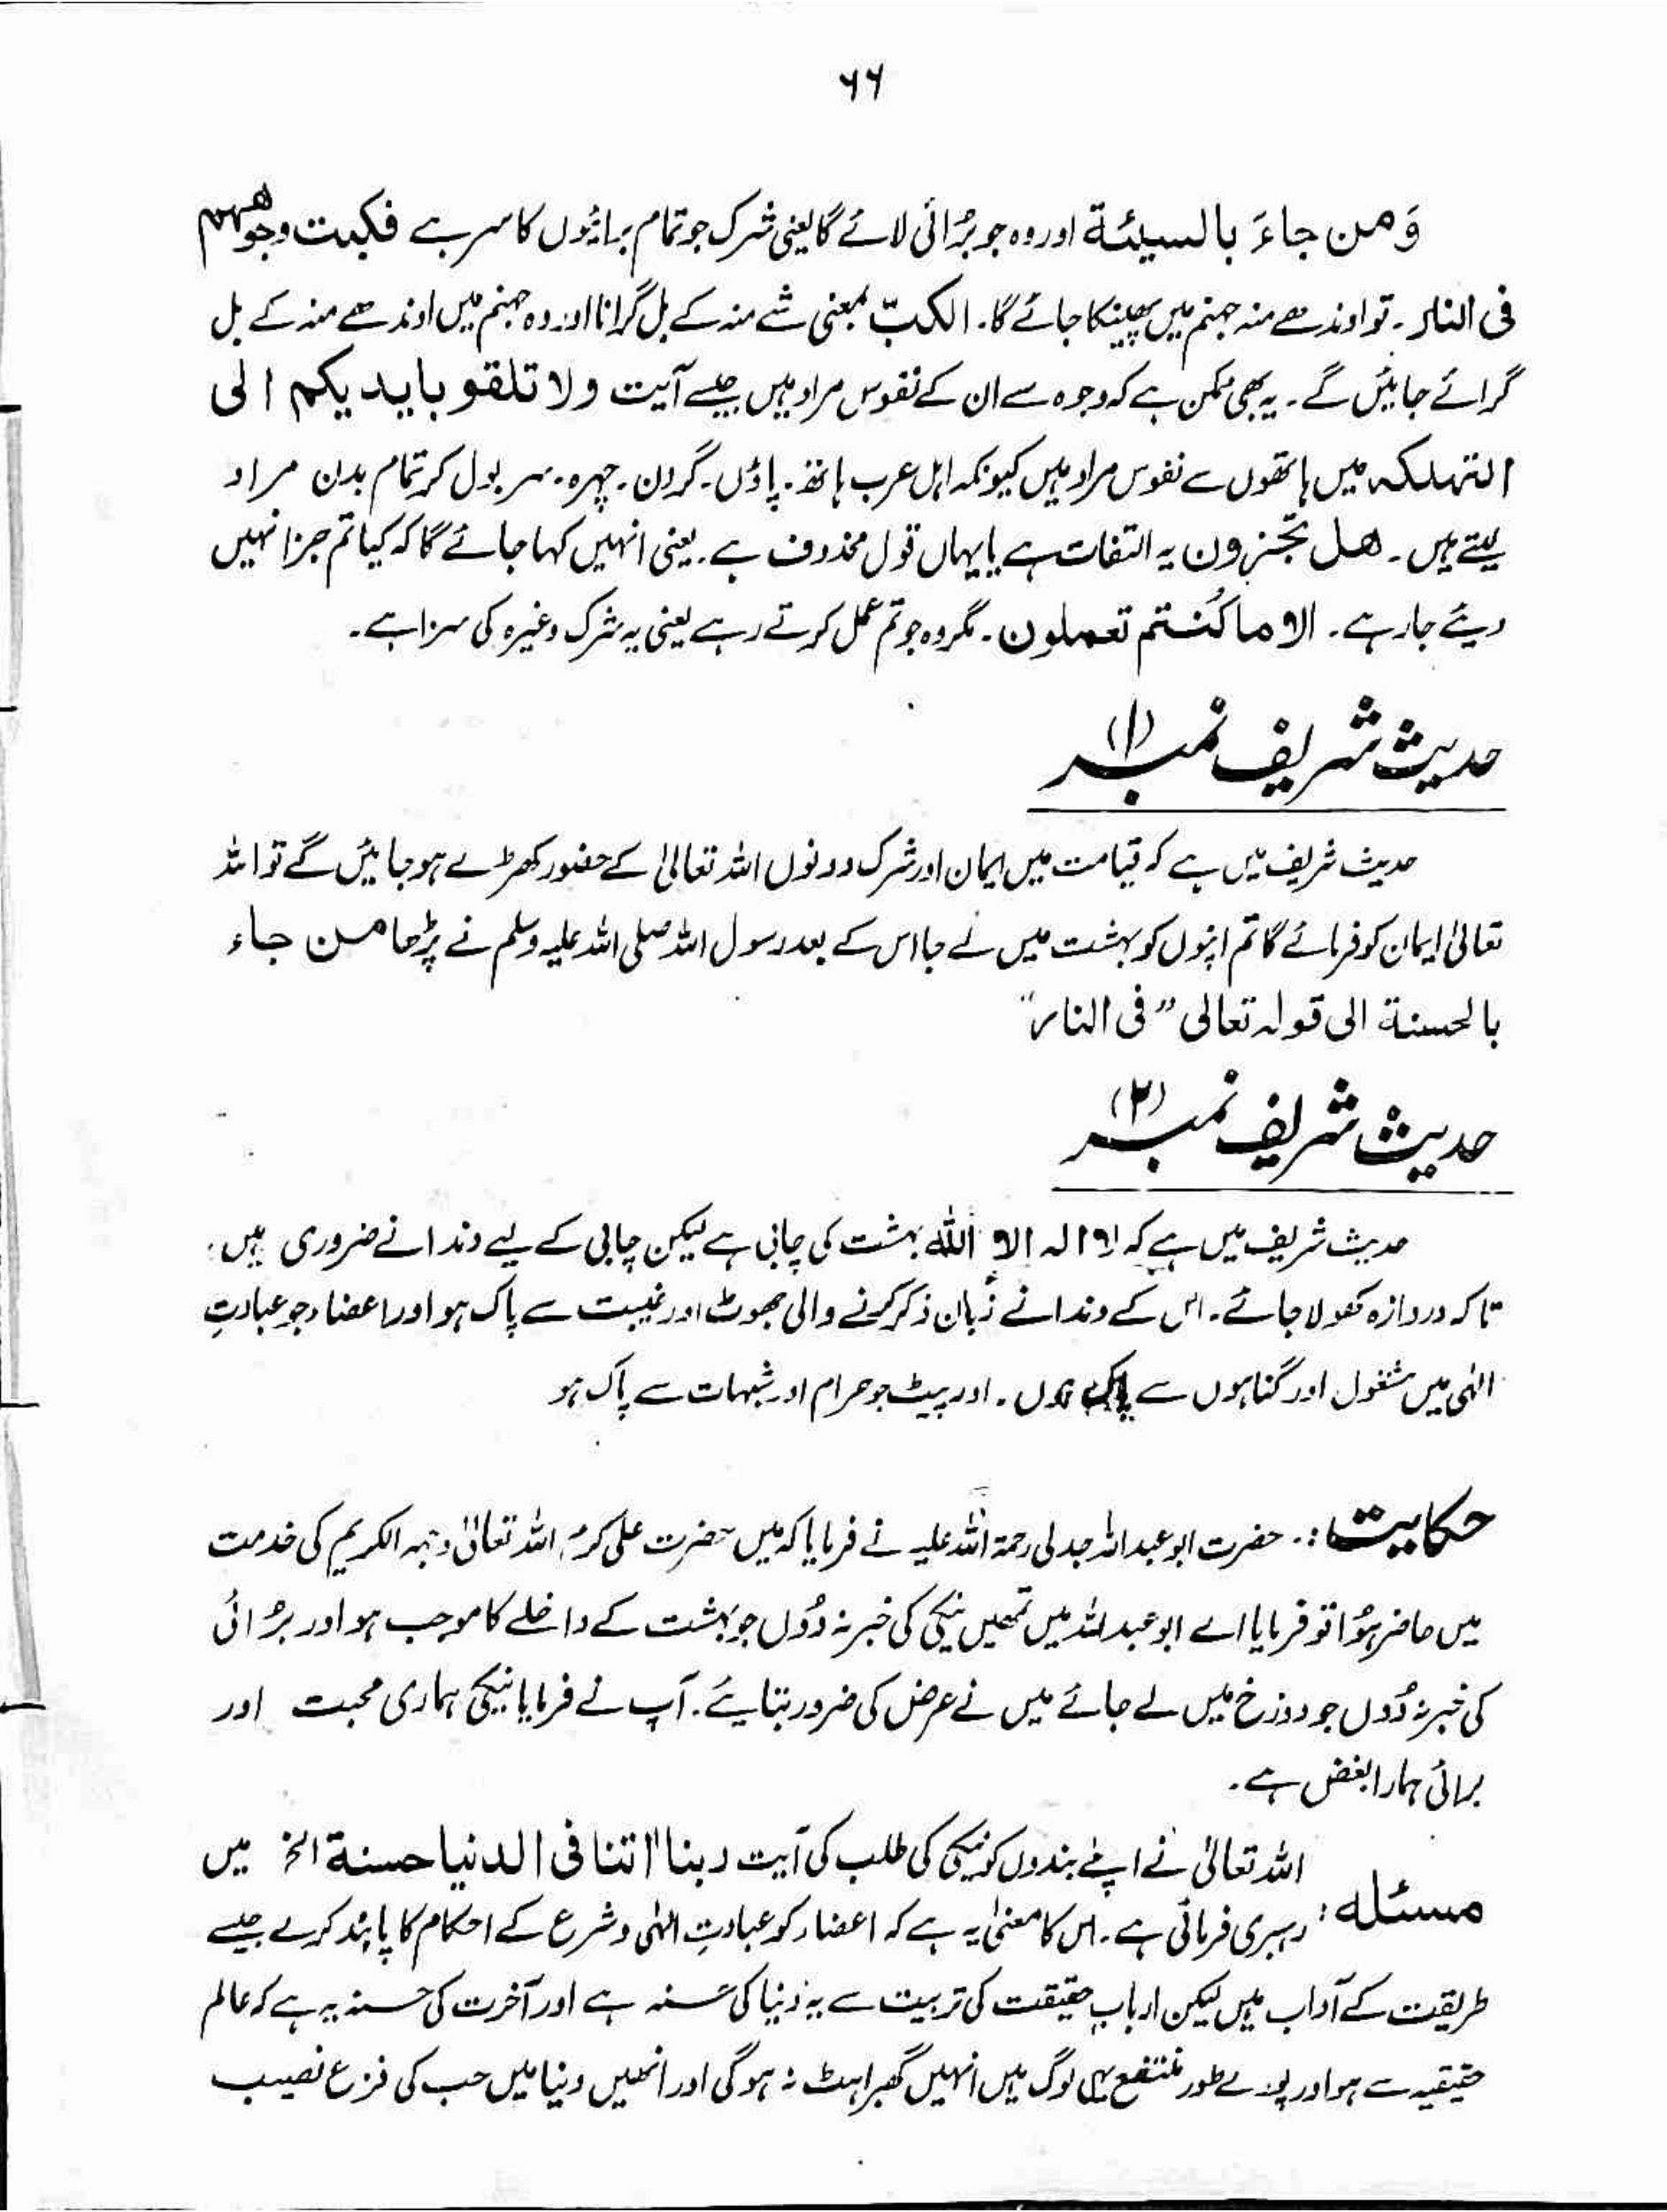 ۶۶
وَمن جاءَ بالسيئة اور وہ جو بُرائی لائے گا یعنی شرک جو تمام برائیوں کا سر ہے فكبت وجوههم
فی النار ۔ تو اوندھے منہ جہنم میں پھینکا جائے گا۔ الکبّ بمعنی شے منہ کے بل گرانا اور وہ جہنم میں اوندھے منہ کے بل
گرائے جائیں گے ۔ یہ بھی ممکن ہے کہ وجوہ سے ان کے نفوس مراد ہیں جیسے آیت ولا تلقو بايديكم الى
التهلكه میں ہاتھوں سے نفوس مراد ہیں کیونکہ اہل عرب ہاتھ ۔ پاؤں ۔ گردن ۔ چہرہ ۔ سر بول کر تمام بدن مراد
لیتے ہیں ۔ هل تجزون یہ التفات ہے یا یہاں قول محذوف ہے ۔ یعنی انہیں کہا جائے گا کہ کیا تم جزا نہیں
دیئے جا رہے ۔ الا ما كُنتم تعملون ۔ مگر وہ جو تم عمل کرتے رہے یعنی یہ شرک وغیرہ کی سزا ہے ۔
حدیث شریف نمبر (۱)
حدیث شریف میں ہے کہ قیامت میں ایمان اور شرک دونوں اللہ تعالیٰ کے حضور کھڑے ہو جائیں گے تو اللہ
تعالیٰ ایمان کو فرمائے گا تم اپنوں کو بہشت میں لے جا اس کے بعد رسول اللہ صلی اللہ علیہ وسلم نے پڑھا من جاء
بالحسنة الى قوله تعالى ”فی النار“
حدیث شریف نمبر (۲)
حدیث شریف میں ہے کہ لا اله الا الله بہشت کی چابی ہے لیکن چابی کے لیے دندانے ضروری ہیں ۔
تاکہ دروازہ کھولا جائے ۔ اس کے دندانے زبان ذکر کرنے والی جھوٹ اور غیبت سے پاک ہو اور اعضاء جو عبادتِ
الٰہی میں مشغول اور گناہوں سے پاک ہوں ۔ اور پیٹ جو حرام اور شبہات سے پاک ہو
حکایت :۔ حضرت ابو عبداللہ جدلی رحمۃ اللہ علیہ نے فرمایا کہ میں حضرت علی کرم اللہ تعالیٰ وجہہ الکریم کی خدمت
میں حاضر ہُوا تو فرمایا اے ابو عبداللہ میں تمھیں نیکی کی خبر نہ دُوں جو بہشت کے داخلے کا موجب ہو اور بُرائی
کی خبر نہ دُوں جو دوزخ میں لے جائے میں نے عرض کی ضرور بتایئے ۔ آپ نے فرمایا نیکی ہماری محبت اور
برائی ہمارا بغض ہے ۔
اللہ تعالیٰ نے اپنے بندوں کو نیکی کی طلب کی آیت ربنا اٰتنا فی الدنيا حسنة الخ میں
مسئلہ : رہبری فرمائی ہے ۔ اس کا معنیٰ یہ ہے کہ اعضاء کو عبادتِ الٰہی و شرع کے احکام کا پابند کرے جیسے
طریقت کے آداب ہیں لیکن اربابِ حقیقت کی تربیت سے یہ دُنیا کی حسنہ ہے اور آخرت کی حسنہ یہ ہے کہ عالم
حقیقیہ سے ہو اور پورے طور منتفع یہی لوگ ہیں انہیں گھبراہٹ نہ ہو گی اور انھیں دنیا میں حب کی فزع نصیب